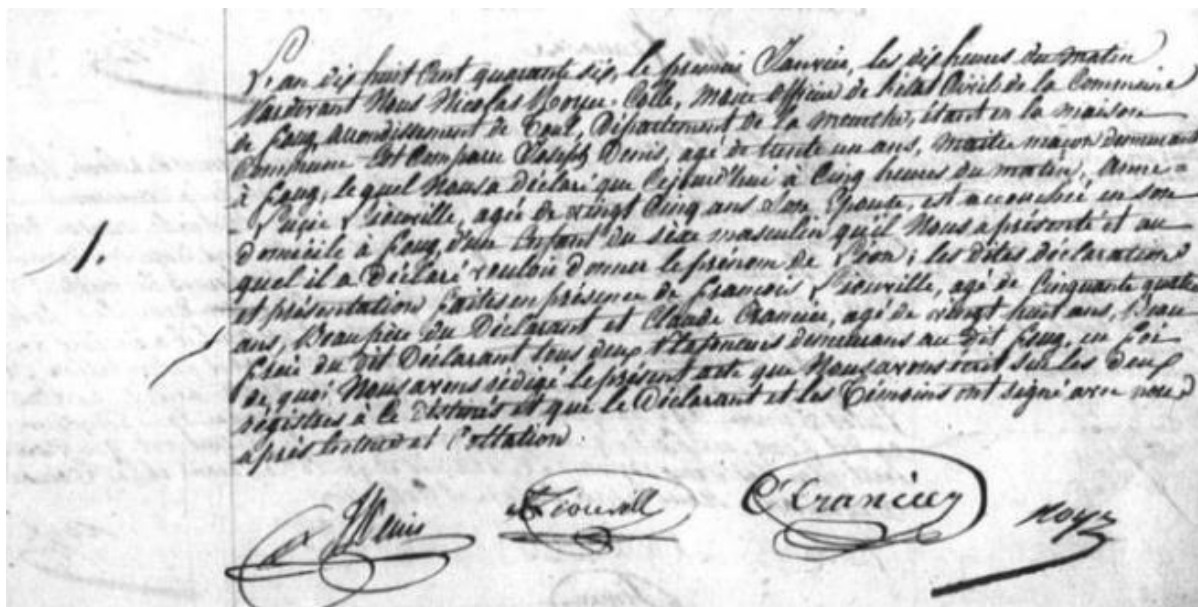 L'an dix huit Cent quarante six, le premier Janvier, les dix heures du matin
Pardevant Nous Nicolas Royer-Collé, Maire officier de l'état Civil de la Commune
de foug arrondissement de Toul, Département de la meurthe, étant en la maison
Commune Est Comparu Joseph Denis, agé de trente un ans, maitre maçon demeurant
à foug, le quel Nous a déclaré que Cejourd'hui à Cinq heures du matin, Anne=
Lucie Liouville, agée de vingt Cinq ans Son Epouse, est accouchée en son
1. domicile à foug, d'un Enfant du sèxe masculin qu'il Nous a présenté et au
quel il a Déclaré vouloir donner le prénom de Léon; les dites déclaration
et présentation faites en présence de françois Liouville, agé de Cinquante quatre
ans, Beau père du Déclarant et Claude Crancée, agé de vingt huit ans, Beau
frère du dit Déclarant tous deux demeurans au dit foug, en foi
de quoi Nous avons rédigé le présent acte que Nous avons écrit sur les deux
régistres à le déstinés et que le Déclarant et les Témoins ont signé avec nous
après lecture et Collation.
JDenis Liouvill Royer